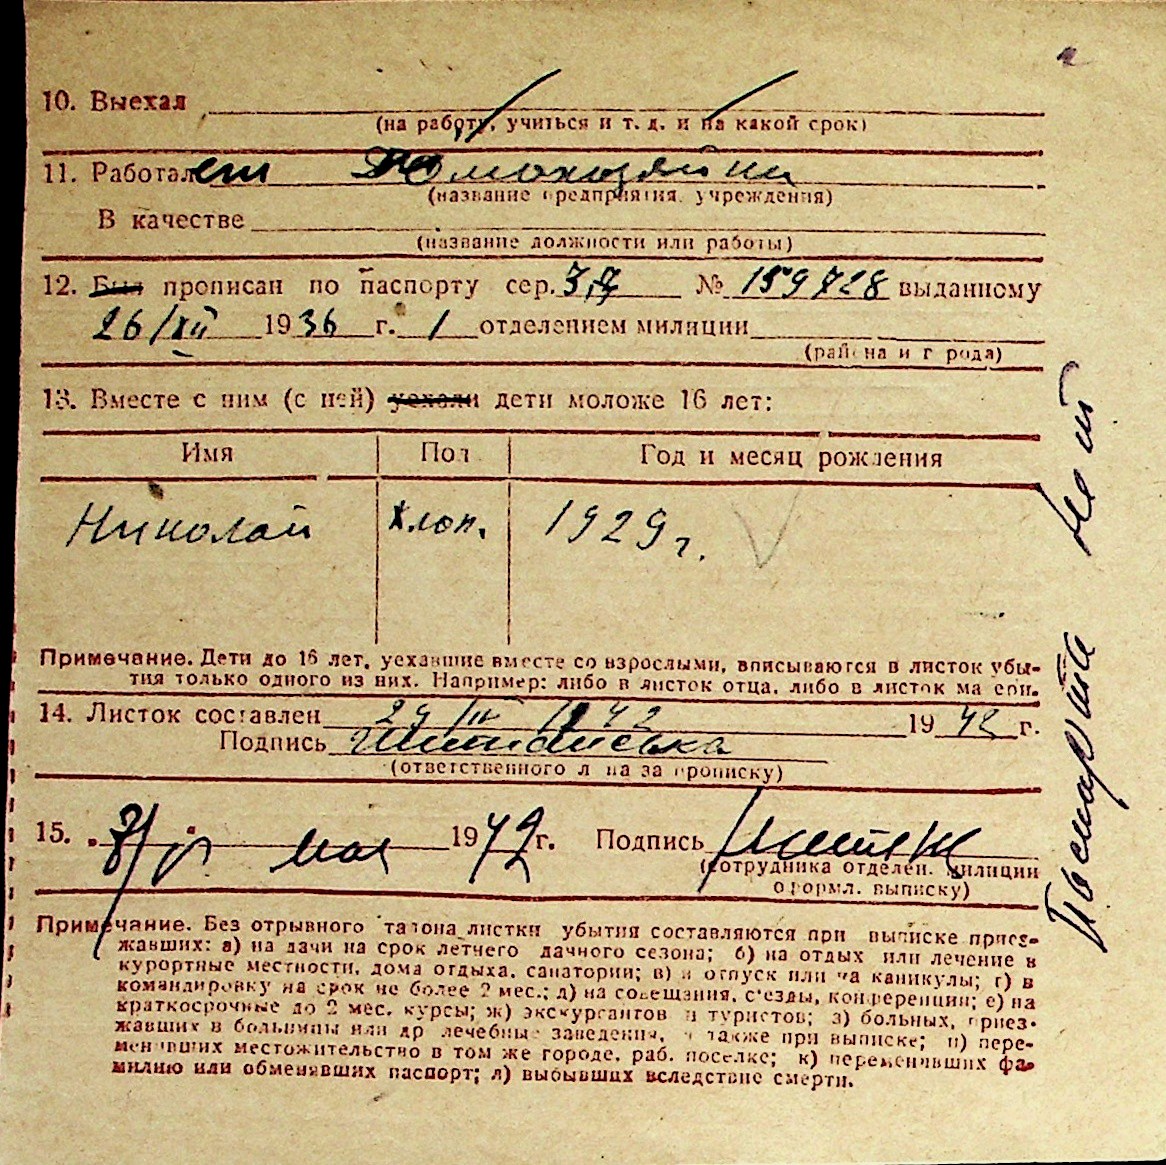 10. Выехал
(на работу, учиться и т. д. и на какой срок)
11. Работает Домохозяйки
(название предприятия, учреждения)
В качестве
(название должности или работы)
12. Был прописан по паспорту сер. № 159728 выданному
26/XII 1936 г. 1 отделением милиции
(района и города)
13. Вместе с ним (с ней) уехали дети моложе 16 лет:
Имя Пол Год и месяц рождения
Николай хлоп. 1929 г.
Примечание. Дети до 16 лет, уехавшие вместе со взрослыми, вписываются в листок убы-
тия только одного из них. Например: либо в листок отца, либо в листок матери.
14. Листок составлен 1942 1942 г.
Подпись
(ответственного лица за прописку)
15. мая 1942 г. Подпись
(сотрудника отделен. милиции
оформл. выписку)
Примечание. Без отрывного талона листки убытия составляются при выписке приез-
жавших: а) на дачи на срок летнего дачного сезона; б) на отдых или лечение в
курортные местности, дома отдыха, санатории; в) в отпуск или на каникулы; г) в
командировку на срок не более 2 мес.; д) на совещания, съезды, конференции; е) на
краткосрочные до 2 мес. курсы; ж) экскурсантов и туристов; з) больных, приез-
жавших в больницы или др лечебные заведения, а также при выписке; и) пере-
менивших местожительство в том же городе, раб. поселке; к) переменивших фа-
милию или обменявших паспорт; л) выбывших вследствие смерти.